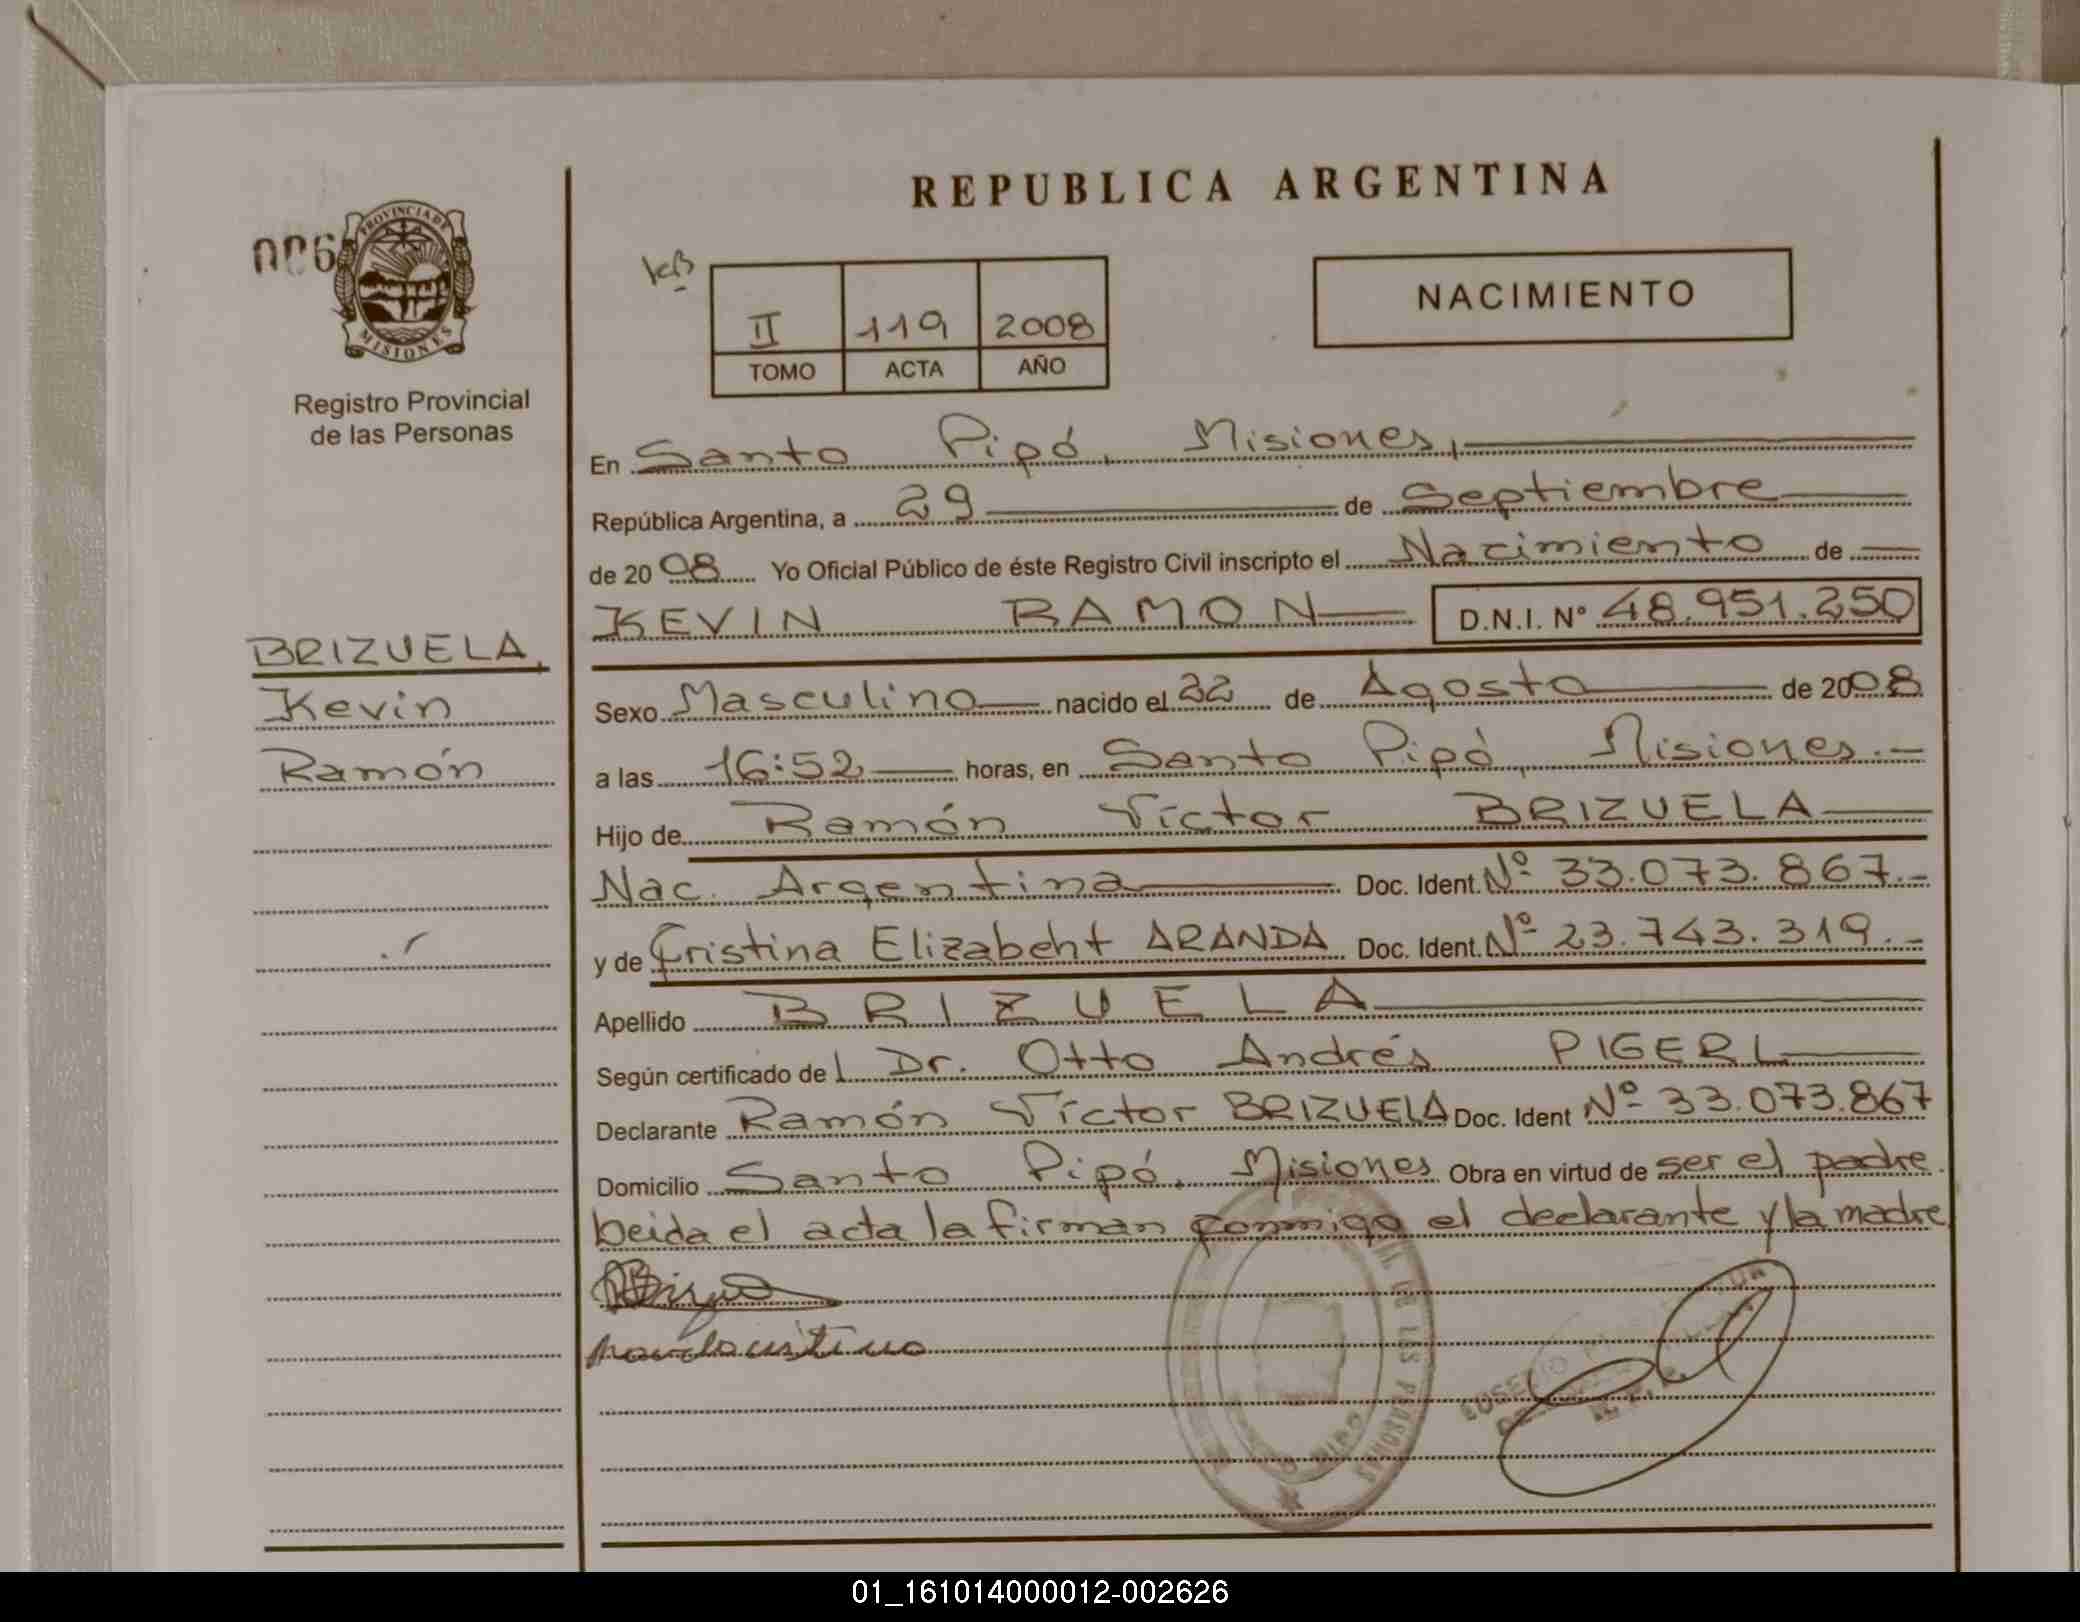 REPUBLICA ARGENTINA
006
PROVINCIA DE
MISIONES
Registro Provincial
de las Personas
KB
II 119 2008
TOMO ACTA AÑO
NACIMIENTO
En Santo Pipó, Misiones,
República Argentina, a 29 de Septiembre
de 2008 Yo Oficial Público de éste Registro Civil inscripto el Nacimiento de
KEVIN RAMON D.N.I. Nº 48.951.250
BRIZUELA,
Kevin
Ramón
Sexo Masculino nacido el 22 de Agosto de 2008
a las 16:52 horas, en Santo Pipó, Misiones.-
Hijo de Ramón Víctor BRIZUELA
Nac. Argentina Doc. Ident. Nº 33.073.867.-
y de Cristina Elizabeht ARANDA Doc. Ident. Nº 23.743.319.-
Apellido BRIZUELA
Según certificado del Dr. Otto Andrés PIGERL
Declarante Ramón Víctor BRIZUELA Doc. Ident Nº 33.073.867
Domicilio Santo Pipó, Misiones Obra en virtud de ser el padre.
Leida el acta la firman conmigo el declarante y la madre
DE LAS PERSONAS
01_161014000012-002626